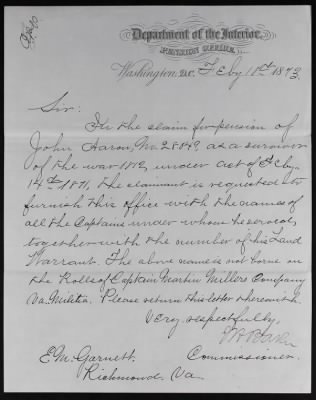 Department of the Interior,
PENSION OFFICE,
Washington, D.C. Feby 11th 1873.
Sir:
In the claim for pension of
John Aaron, No. 28149, as a survivor
of the war 1812, under act of Feby.
14th 1871, the claimant is requested to
furnish this office with the names of
all the Captains under whom he served,
together with the number of his Land
Warrant. The above name is not borne on
the Rolls of Captain Martin Millers Company
Va. Militia. Please return this letter thereunto.
Very respectfully,
Commissioner.
E. M. Garnett.
Richmond, Va.